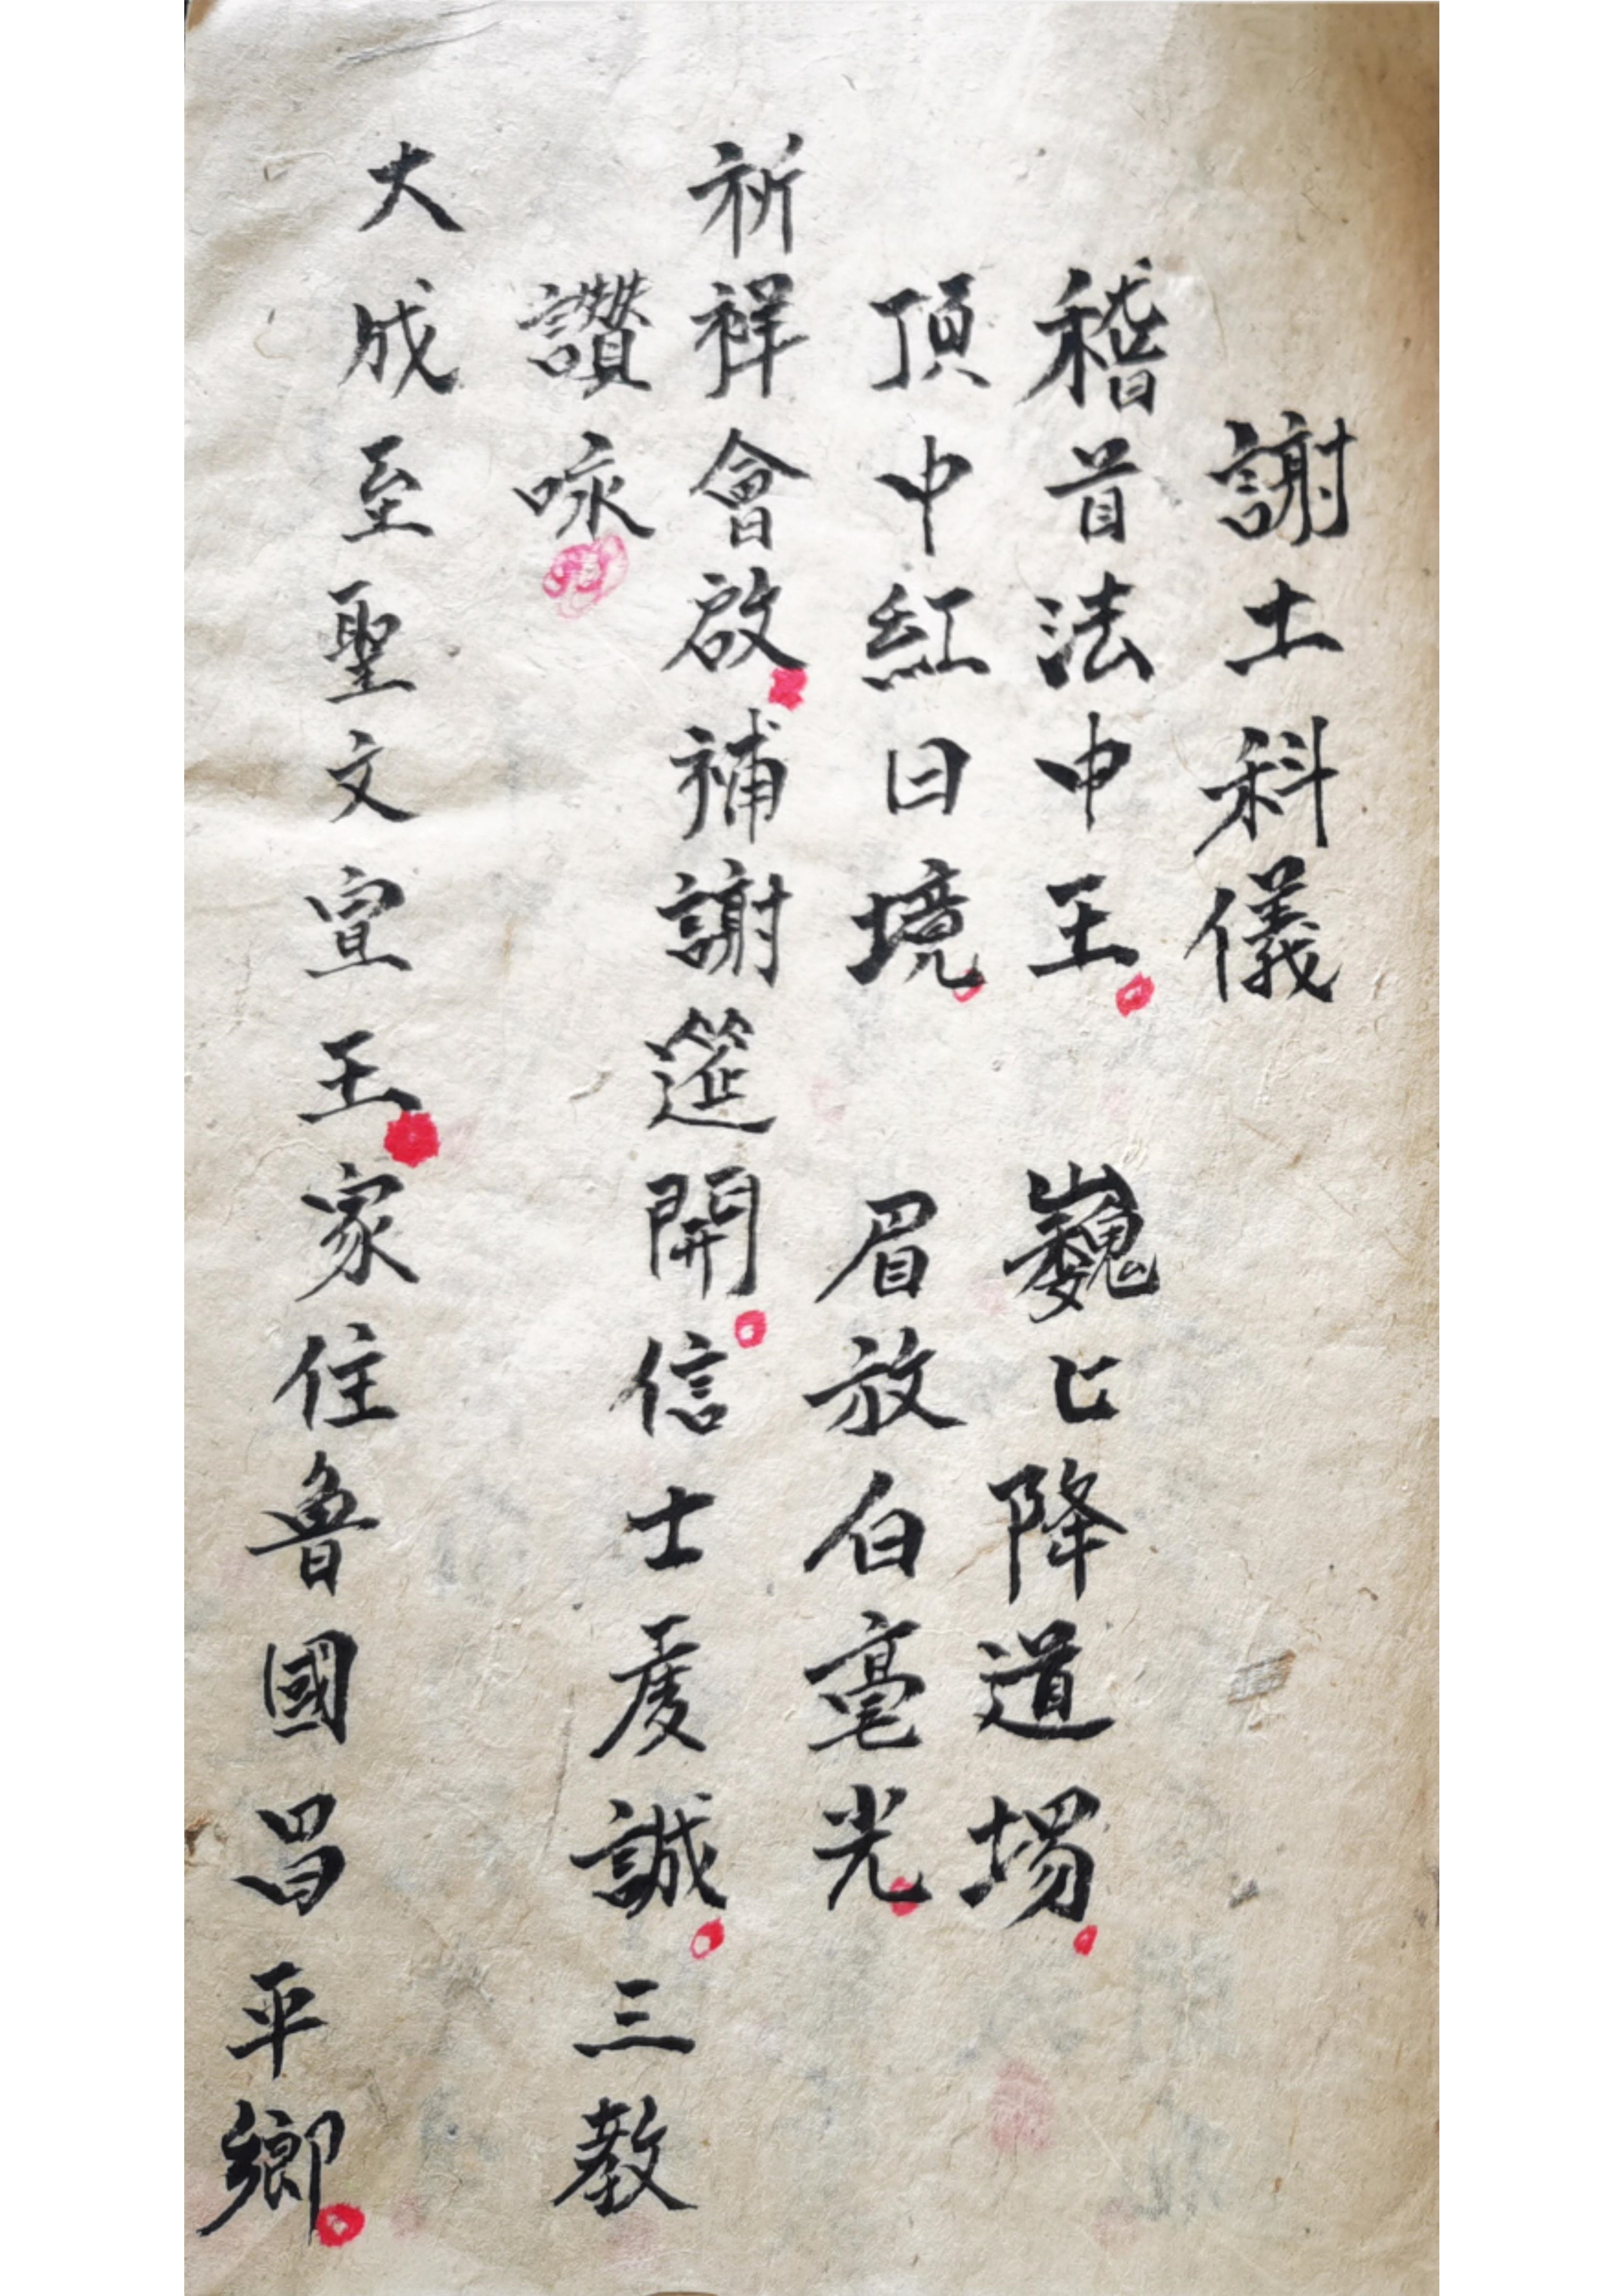 謝土科儀
稽首法中王 巍匕降道場
頂中紅日境 眉放白毫光
祈祥會啟補謝筵開信士虔誠三教
讚咏
大成至聖文宣王家住魯國昌平鄉